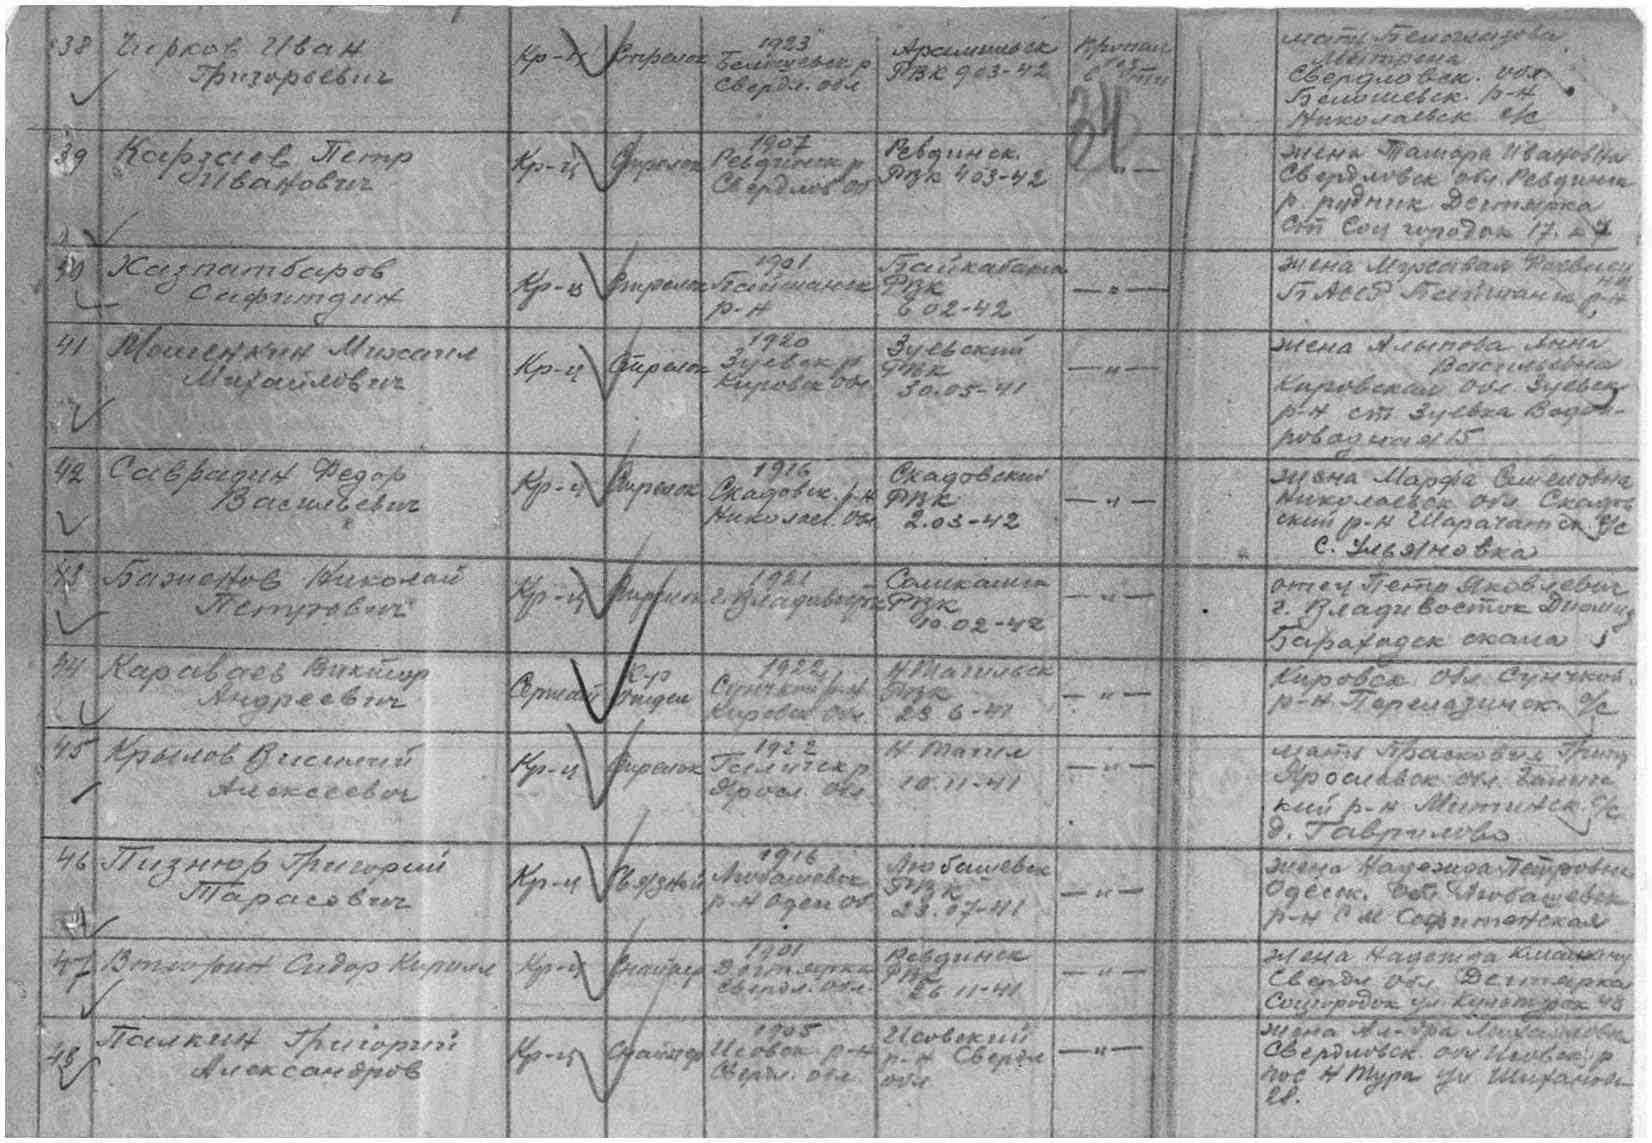 38 Чирков Иван
Григорьевич
Кр-ц
Стрелок
1923
Свердл. обл
Арамильск
РВК 903-42
Пропал
мать
Свердловск. обл
р-н
Николаевск с/с
34
39 Карзаев Петр
Иванович
Кр-ц
Стрелок
1907
Ревдинск р
Свердлов об
Ревдинск.
РВК 403-42
— " —
жена Тамара Ивановна
Свердловск обл. Ревдинск
р. рудник Дегтярка
Соц городок 17. к 7
40 Хазпатбаров
Сафитдин
Кр-ц
Стрелок
1901
р-н
РВК
602-42
— " —
жена
р-н
41 Мошенкин Михаил
Михайлович
Кр-ц
Стрелок
1920
Зуевск р
Кировск обл
Зуевский
РВК
30.05-41
— " —
жена Алыпова Анна
Васильевна
Кировская обл. Зуевск
р-н ст Зуевка Водоп-
роводная 15
42 Саврадин Федор
Васильевич
Кр-ц
Стрелок
1916
Скадовск. р-н
Николаев. обл
Скадовский
РВК
2.03-42
— " —
жена Марфа Семеновна
Николаевск обл Скадов
ский р-н с/с
с. Ульяновка
43 Баженов Николай
Петрович
Кр-ц
Стрелок
1921
г. Владивосток
РВК
10.02-42
— " —
отец Петр Яковлевич
г. Владивосток Диомид
скала 5
44 Караваев Виктор
Андреевич
Сержант
К-р
отдел
1922
р-н
Кировск обл.
Н Тагильск
РВК
23.6-41
— " —
Кировск обл
р-н с/с
45 Крылов Василий
Алексеевич
Кр-ц
Стрелок
1922
Галичск р
Яросл. обл.
Н Тагил
10.11-41
— " —
мать Прасковья Григ
Ярославск обл. Галич
кий р-н Митинск. с/с
д. Гаврилово
46 Пизнюр Григорий
Тарасович
Кр-ц
Связной
1916
Любашевск
р-н Одесс об
Любашевск
РВК
23.07-41
— " —
жена Надежда Петровна
Одесск. обл Любашевск
р-н
47 Сидор Кирилл
Кр-ц
Снайпер
1901
Дегтярка
Свердл. обл.
Ревдинск
РВК
26 11-41
— " —
жена Надежда
Свердл обл Дегтярка
Соцгородок ул Культуры 48
48 Палкин Григорий
Александров
Кр-ц
Снайпер
1905
Исовск. р-н
Свердл. обл
Исовский
р-н Свердл
обл
— " —
жена Ал-дра Михайловна
Свердловск. обл Исовск р
пос Н Тура ул
28.